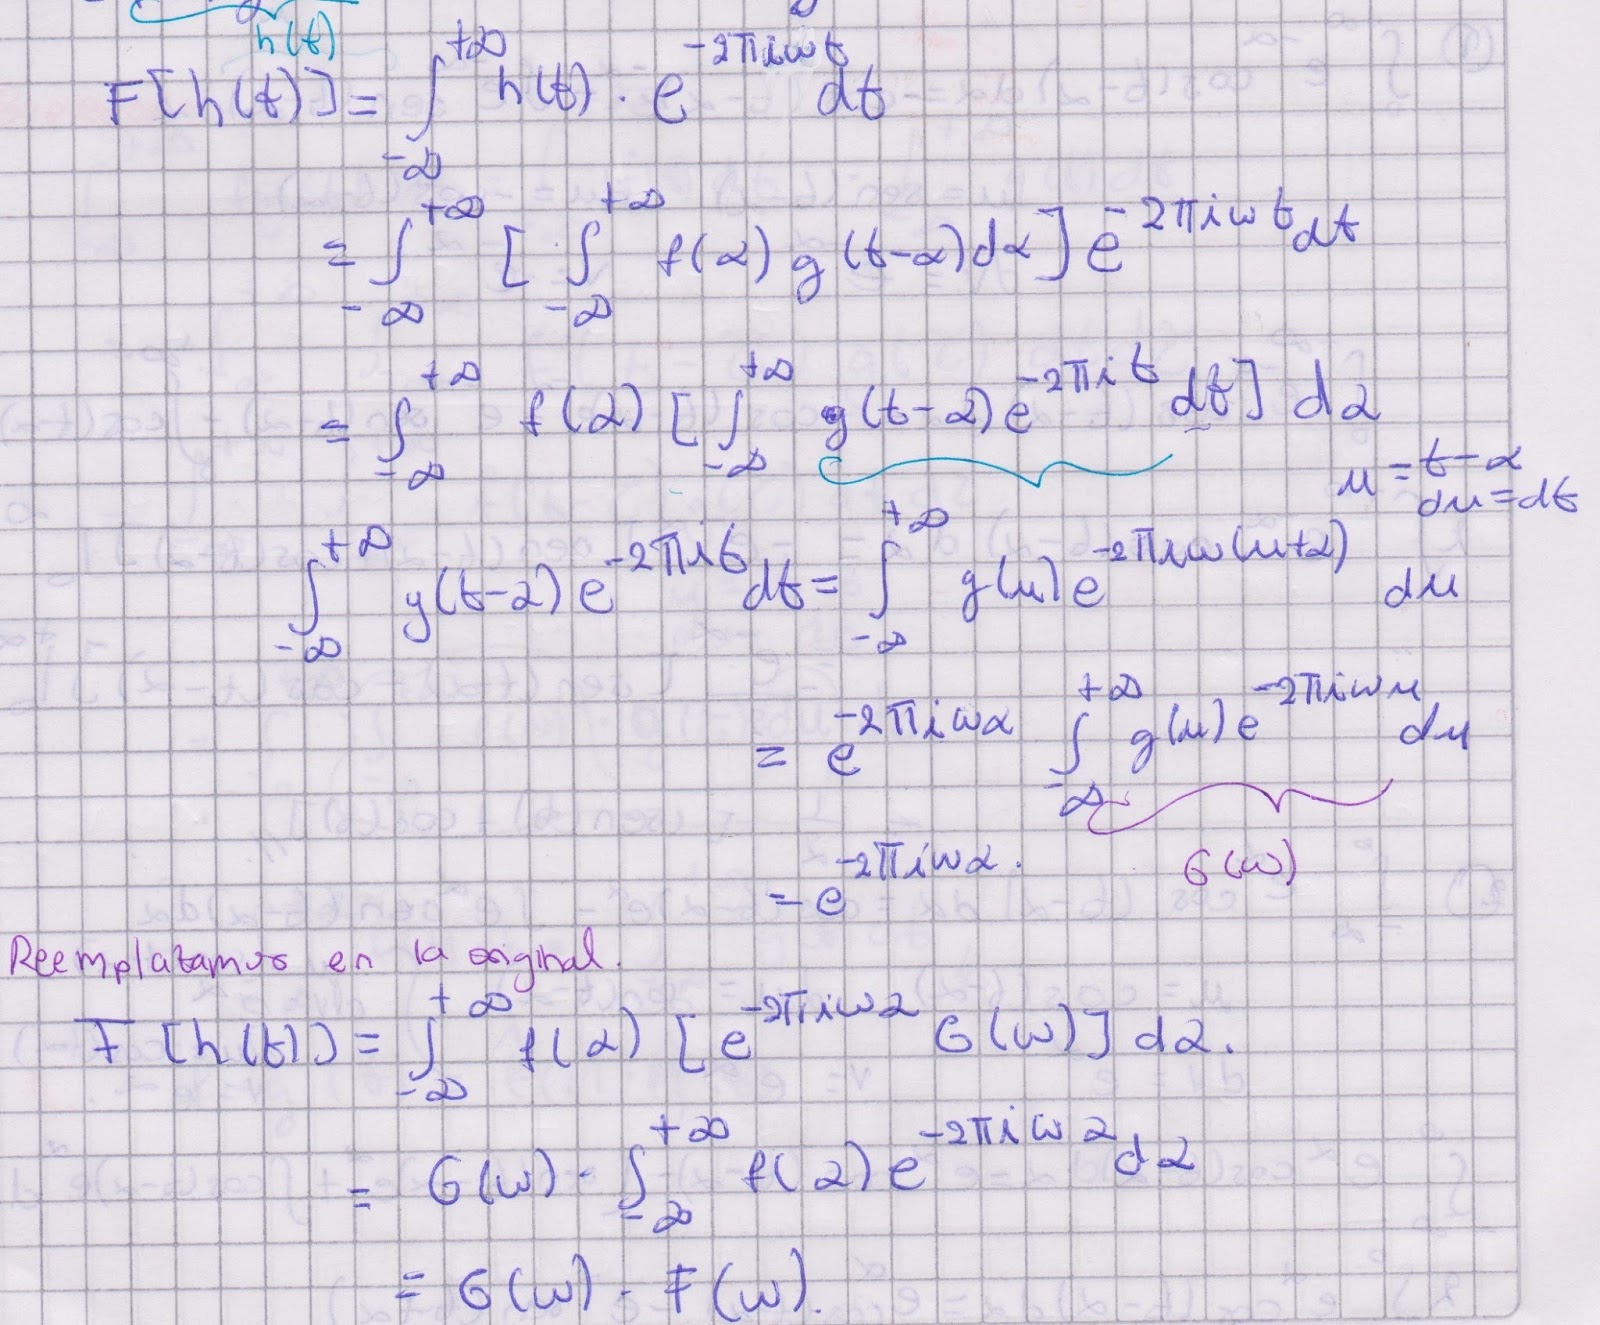 h(t)
F[h(t)] = ∫_{-∞}^{+∞} h(t) · e^{-2πiωt} dt
= ∫_{-∞}^{+∞} [ ∫_{-∞}^{+∞} f(α) g(t-α)dα ] e^{-2πiωt} dt
= ∫_{-∞}^{+∞} f(α) [ ∫_{-∞}^{+∞} g(t-α) e^{-2πit} dt ] dα
u = t-α
du = dt
∫_{-∞}^{+∞} g(t-α) e^{-2πit} dt = ∫_{-∞}^{+∞} g(u) e^{-2πiω(u+α)} du
= e^{-2πiωα} ∫_{-∞}^{+∞} g(u) e^{-2πiωu} du
G(ω)
= e^{-2πiωα} .
Reemplatamos en la original.
F [h(t)] = ∫_{-∞}^{+∞} f(α) [e^{-2πiωα} G(ω)] dα.
= G(ω) · ∫_{-∞}^{+∞} f(α) e^{-2πiωα} dα
= G(ω) · F(ω).